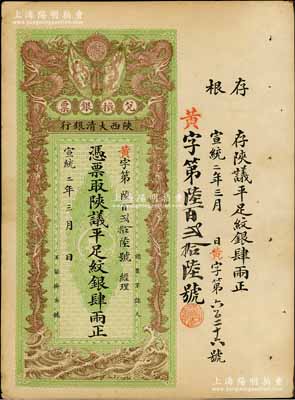 上海阳明拍卖
WWW.YMPM.COM
存根
存陝議平足紋銀肆兩正
宣統二年三月 日黃字第六百二十六號
黃字第陸百弍拾陸號
兌換銀票
陝西大清銀行
黃字第陸百弍拾陸號 經理
憑票取陝議平足紋銀肆兩正
宣統二年三月 日
上海阳明拍卖